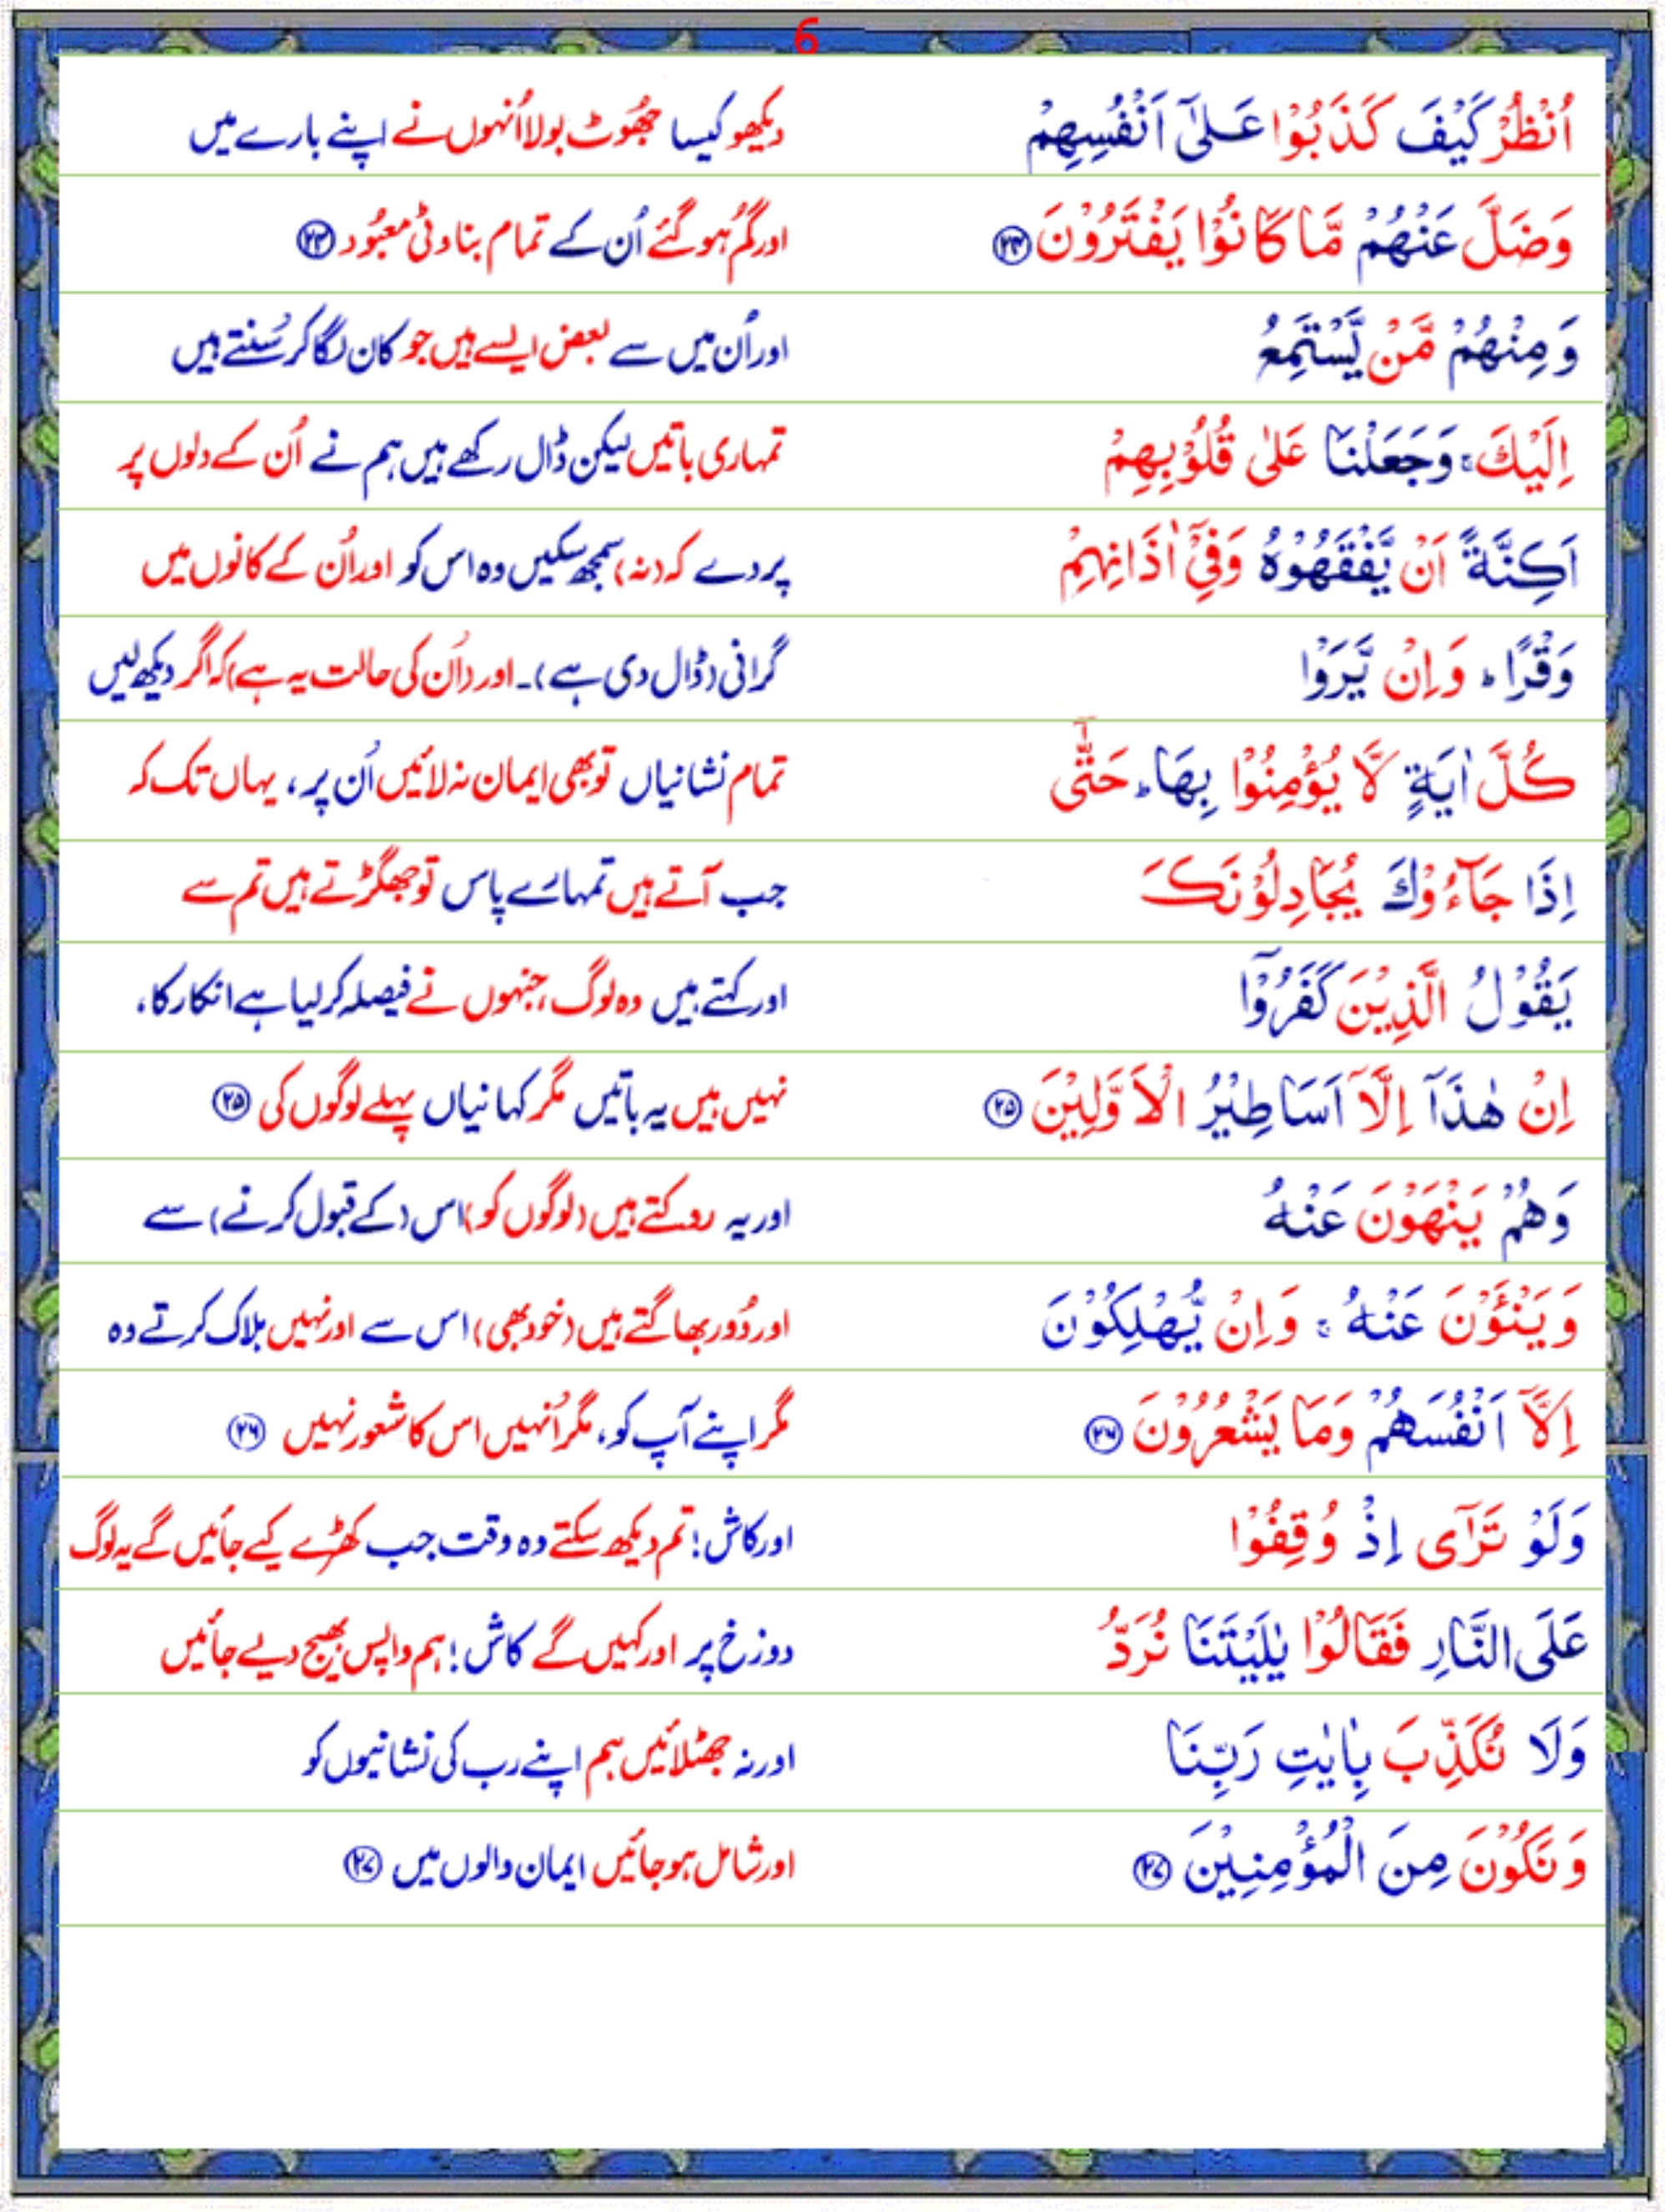 6
اُنْظُرْ كَيْفَ كَذَبُوْا عَلٰٓى اَنْفُسِهِمْ دیکھو کیسا جھُوٹ بولا اُنہوں نے اپنے بارے میں
وَضَلَّ عَنْهُمْ مَّا كَانُوْا يَفْتَرُوْنَ ۲۴ اور گُم ہو گئے اُن کے تمام بناوٹی معبُود ۲۴
وَمِنْهُمْ مَّنْ يَّسْتَمِعُ اور اُن میں سے بعض ایسے ہیں جو کان لگا کر سُنتے ہیں
اِلَيْكَ ۚ وَجَعَلْنَا عَلٰى قُلُوْبِهِمْ تمہاری باتیں لیکن ڈال رکھے ہیں ہم نے اُن کے دلوں پر
اَكِنَّةً اَنْ يَّفْقَهُوْهُ وَفِىْٓ اٰذَانِهِمْ پردے کہ (نہ) سمجھ سکیں وہ اس کو اور اُن کے کانوں میں
وَقْرًا ؕ وَاِنْ يَّرَوْا گرانی (ڈال دی ہے)۔ اور (اُن کی حالت یہ ہے) کہ اگر دیکھ لیں
كُلَّ اٰيَةٍ لَّا يُؤْمِنُوْا بِهَا ؕ حَتّٰٓى تمام نشانیاں تو بھی ایمان نہ لائیں اُن پر، یہاں تک کہ
اِذَا جَآءُوْكَ يُجَادِلُوْنَكَ جب آتے ہیں تمہارے پاس تو جھگڑتے ہیں تم سے
يَقُوْلُ الَّذِيْنَ كَفَرُوْٓا اور کہتے ہیں وہ لوگ، جنہوں نے فیصلہ کر لیا ہے انکار کا،
اِنْ هٰذَآ اِلَّآ اَسَاطِيْرُ الْاَوَّلِيْنَ ۲۵ نہیں ہیں یہ باتیں مگر کہانیاں پہلے لوگوں کی ۲۵
وَهُمْ يَنْهَوْنَ عَنْهُ اور یہ روکتے ہیں (لوگوں کو) اس (کے قبول کرنے) سے
وَيَنْئَوْنَ عَنْهُ ۚ وَاِنْ يُّهْلِكُوْنَ اور دُور بھاگتے ہیں (خود بھی) اس سے اور نہیں ہلاک کرتے وہ
اِلَّآ اَنْفُسَهُمْ وَمَا يَشْعُرُوْنَ ۲۶ مگر اپنے آپ کو، مگر اُنہیں اس کا شعور نہیں ۲۶
وَلَوْ تَرٰٓى اِذْ وُقِفُوْا اور کاش! تم دیکھ سکتے وہ وقت جب کھڑے کیے جائیں گے یہ لوگ
عَلَى النَّارِ فَقَالُوْا يٰلَيْتَنَا نُرَدُّ دوزخ پر اور کہیں گے کاش! ہم واپس بھیج دیے جائیں
وَلَا نُكَذِّبَ بِاٰيٰتِ رَبِّنَا اور نہ جھٹلائیں ہم اپنے رب کی نشانیوں کو
وَنَكُوْنَ مِنَ الْمُؤْمِنِيْنَ ۲۷ اور شامل ہو جائیں ایمان والوں میں ۲۷